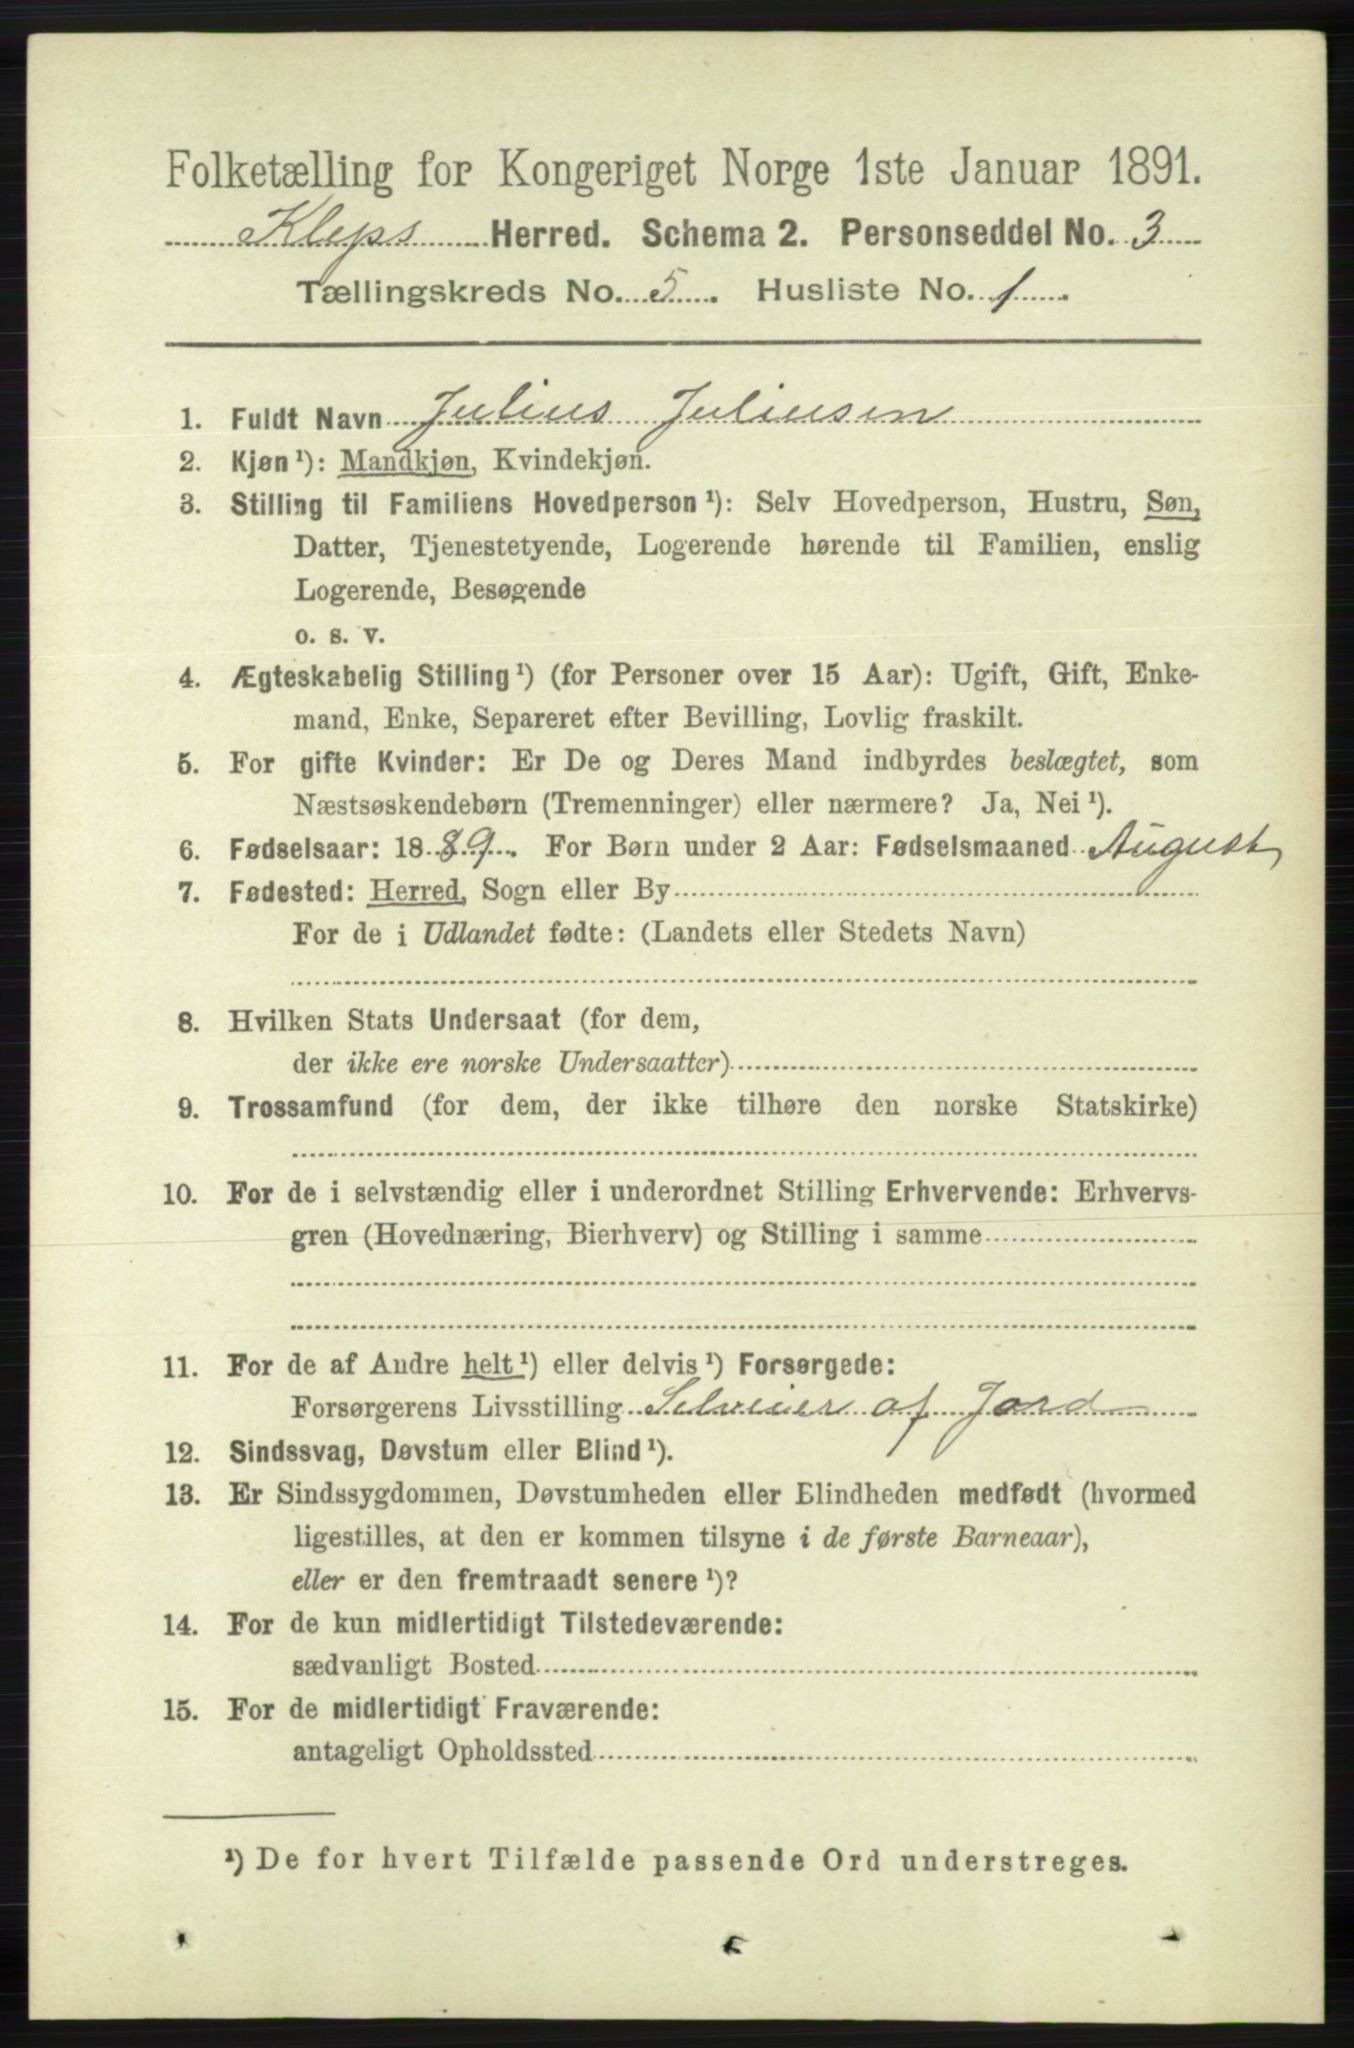 Folketælling for Kongeriget Norge 1ste Januar 1891.
Kleps Herred. Schema 2. Personseddel No. 3
Tællingskreds No. 5. Husliste No. 1.
1. Fuldt Navn Julius Juliusen
2. Kjøn ¹): Mandkjøn, Kvindekjøn.
3. Stilling til Familiens Hovedperson ¹): Selv Hovedperson, Hustru, Søn,
Datter, Tjenestetyende, Logerende hørende til Familien, enslig
Logerende, Besøgende
o. s. v.
4. Ægteskabelig Stilling ¹) (for Personer over 15 Aar): Ugift, Gift, Enke-
mand, Enke, Separeret efter Bevilling, Lovlig fraskilt.
5. For gifte Kvinder: Er De og Deres Mand indbyrdes beslægtet, som
Næstsøskendebørn (Tremenninger) eller nærmere? Ja, Nei ¹).
6. Fødselsaar: 1889. For Børn under 2 Aar: Fødselsmaaned August
7. Fødested: Herred, Sogn eller By
For de i Udlandet fødte: (Landets eller Stedets Navn)
8. Hvilken Stats Undersaat (for dem,
der ikke ere norske Undersaatter)
9. Trossamfund (for dem, der ikke tilhøre den norske Statskirke)
10. For de i selvstændig eller i underordnet Stilling Erhvervende: Erhvervs-
gren (Hovednæring, Bierhverv) og Stilling i samme
11. For de af Andre helt ¹) eller delvis ¹) Forsørgede:
Forsørgerens Livsstilling Selveier af Jord
12. Sindssvag, Døvstum eller Blind ¹).
13. Er Sindssygdommen, Døvstumheden eller Blindheden medfødt (hvormed
ligestilles, at den er kommen tilsyne i de første Barneaar),
eller er den fremtraadt senere ¹)?
14. For de kun midlertidigt Tilstedeværende:
sædvanligt Bosted
15. For de midlertidigt Fraværende:
antageligt Opholdssted
¹) De for hvert Tilfælde passende Ord understreges.